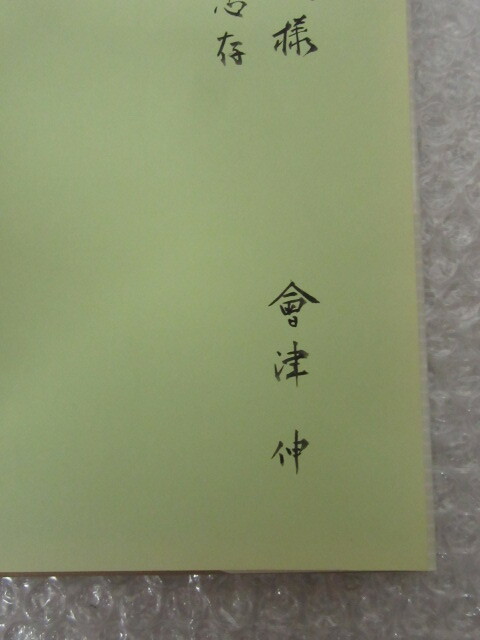 様
會津 伸
存